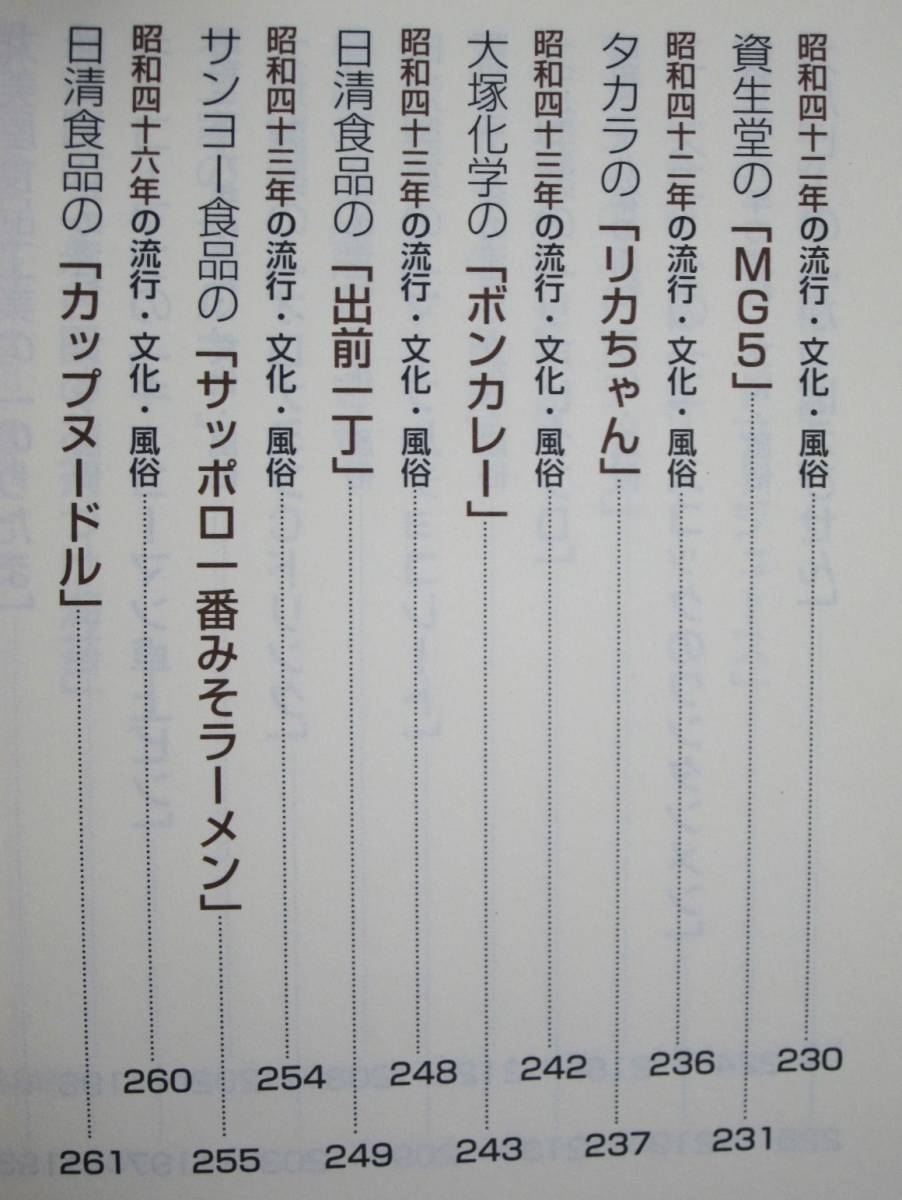 昭和四十二年の流行・文化・風俗 230
資生堂の「MG5」 231
昭和四十二年の流行・文化・風俗 236
タカラの「リカちゃん」 237
昭和四十三年の流行・文化・風俗 242
大塚化学の「ボンカレー」 243
昭和四十三年の流行・文化・風俗 248
日清食品の「出前一丁」 249
昭和四十三年の流行・文化・風俗 254
サンヨー食品の「サッポロ一番みそラーメン」 255
昭和四十六年の流行・文化・風俗 260
日清食品の「カップヌードル」 261